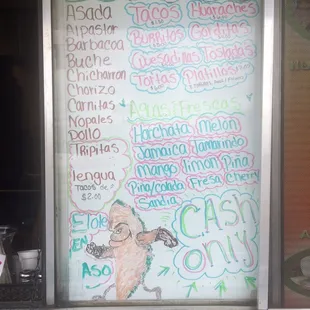 Asada
Alpastor
Barbacoa
Buche
Chicharron
Chorizo
Carnitas
Nopales
Pollo
Tripitas
lengua
Tacos de
$2.00
Elote
EN
ASO
Tacos Huaraches
Burritos Gorditas
Quesadillas Tostadas
Tortas Platillos
Aguas Frescas
Horchata Melón
Jamaica Tamarindo
Mango limon Piña
Pina/colada Fresa Cherry
Sandia
CAsh
only